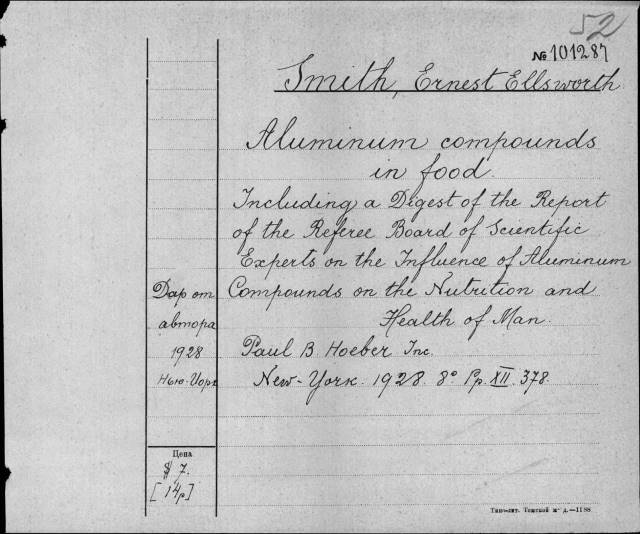 52
№ 101287
Smith, Ernest Ellsworth
Aluminum compounds
in food.
Including a Digest of the Report
of the Referee Board of Scientific
Experts on the Influence of Aluminum
Compounds on the Nutrition and
Health of Man.
Paul B Hoeber Inc.
New-York. 1928. 8° Pp. XII. 378.
Дар от
автора
1928
Нью-Иорк
Цена
$ 7.
[14р]
Типо-лит. Томской ж. д.—1188